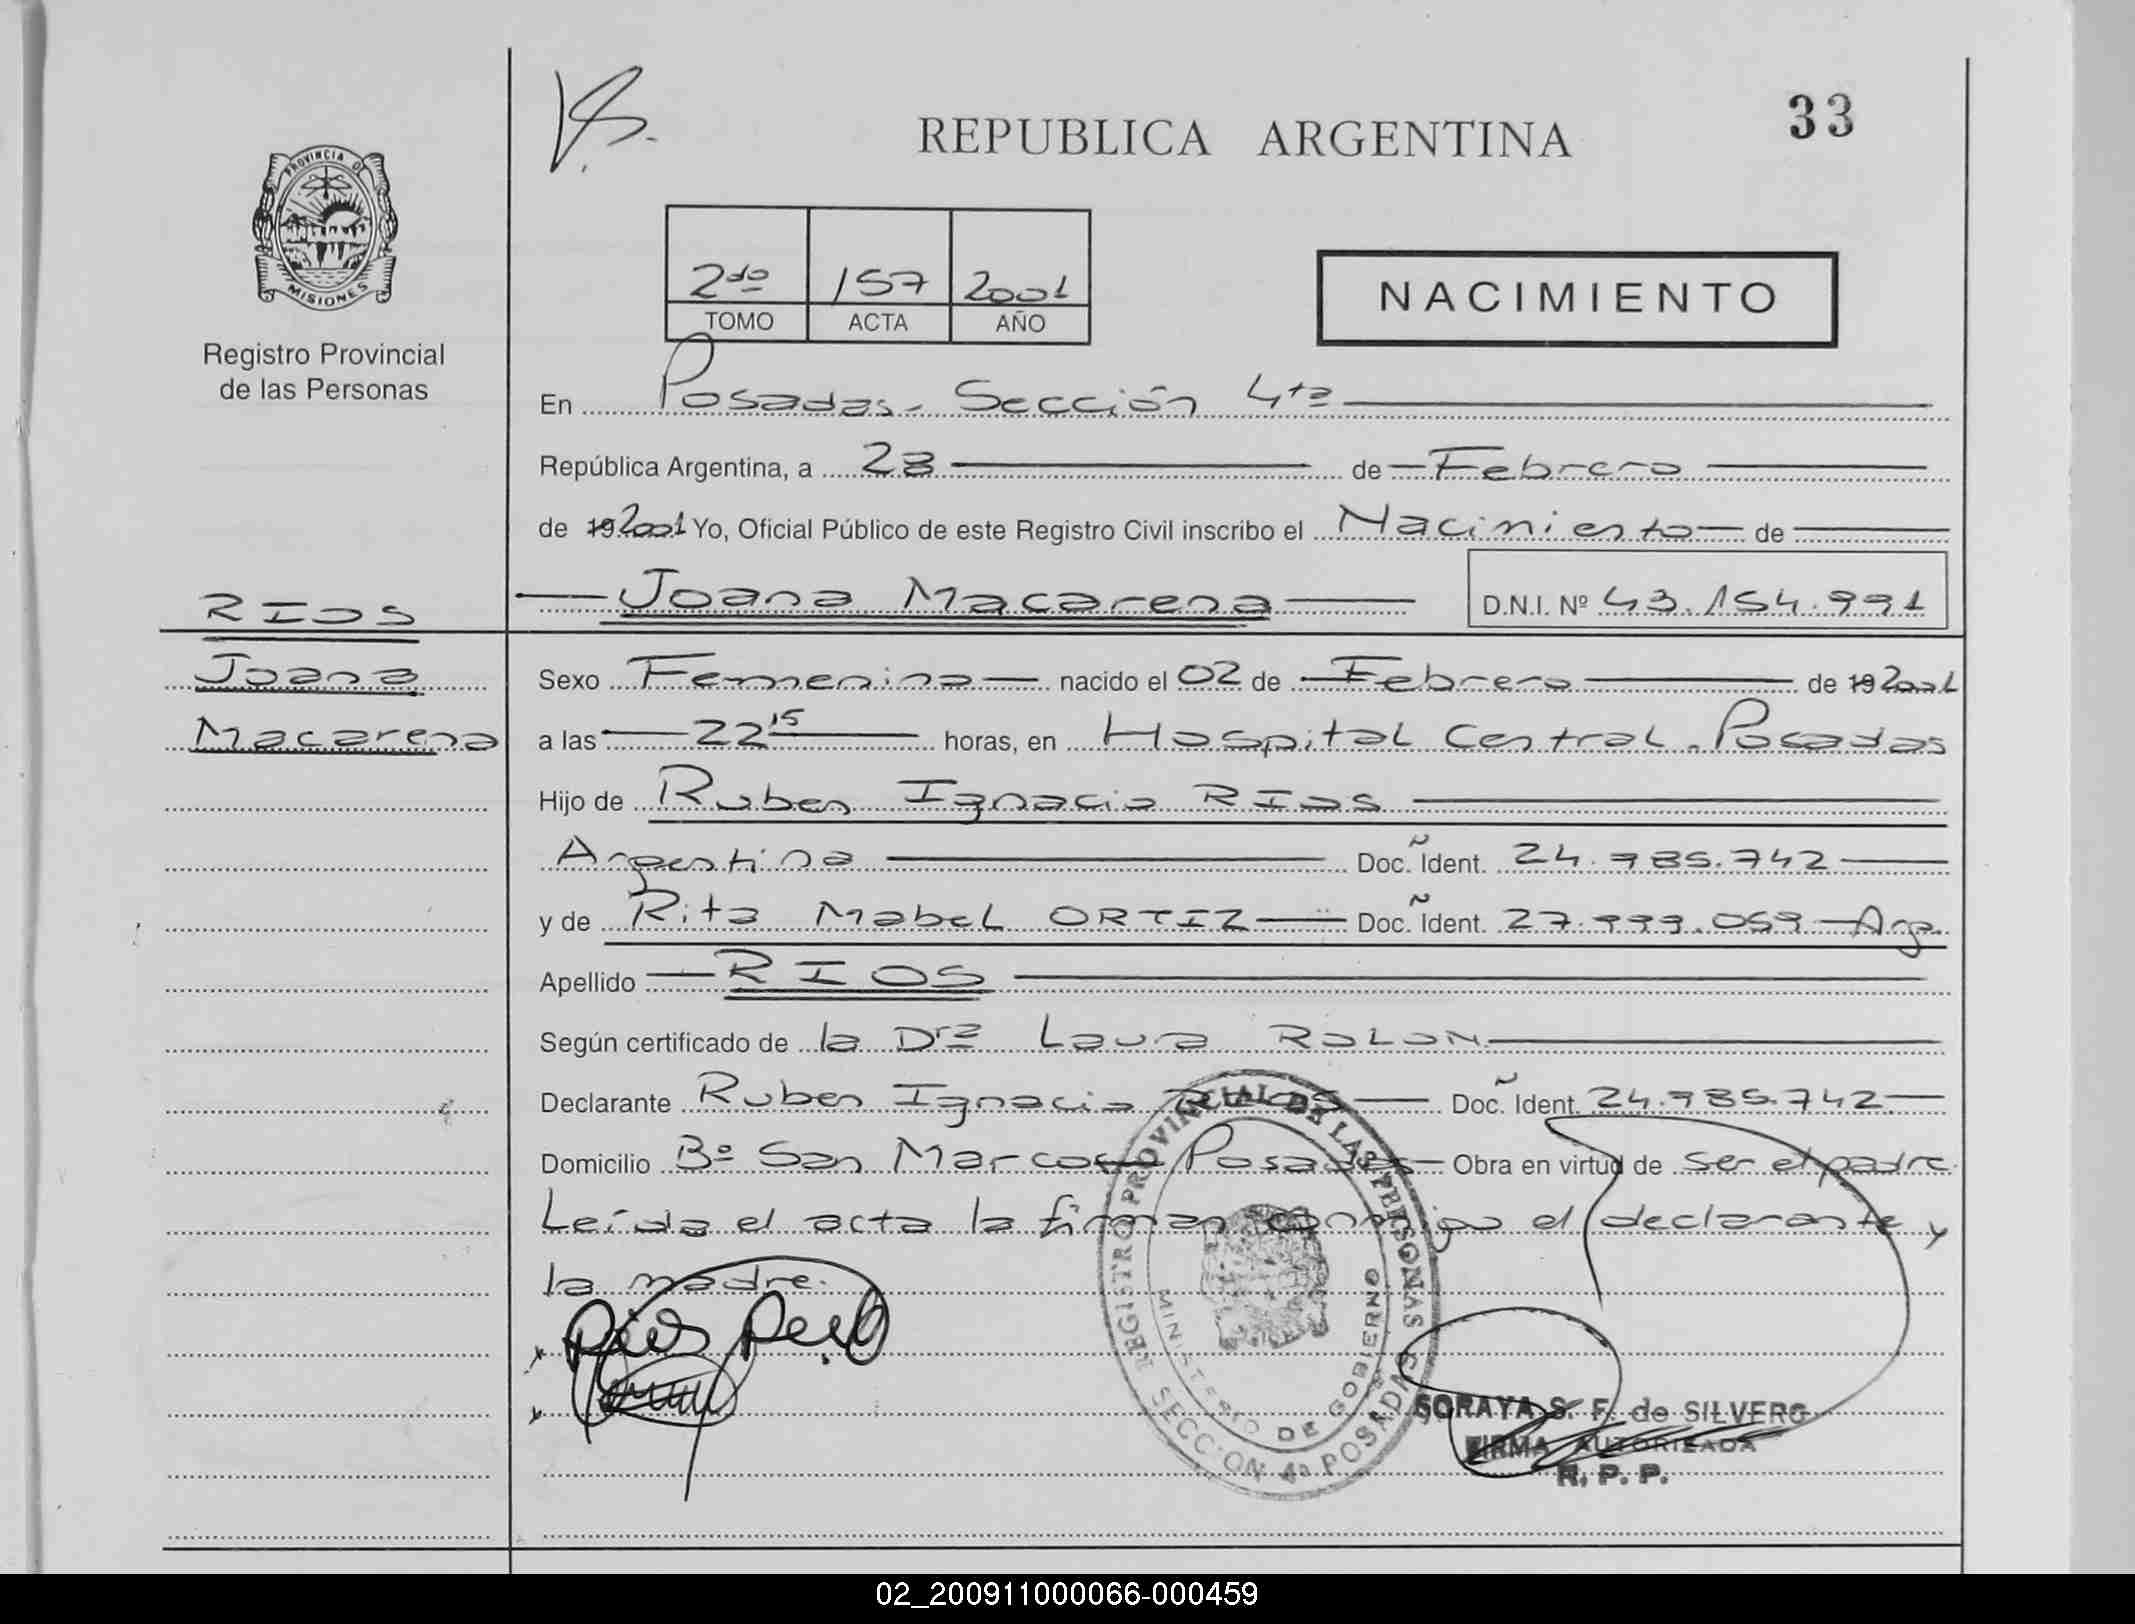 V.B.
REPUBLICA ARGENTINA
33
PROVINCIA DE MISIONES
Registro Provincial
de las Personas
2do 157 2001
TOMO ACTA AÑO
NACIMIENTO
En Posadas - Sección 4ta
República Argentina, a 28 de Febrero
de 19 2001 Yo, Oficial Público de este Registro Civil inscribo el Nacimiento de
RIOS
Joana Macarena D.N.I. Nº 43.154.991
Joana
Macarena
Sexo Femenino nacido el 02 de Febrero de 19 2001
a las 22 15 horas, en Hospital Central - Posadas
Hijo de Ruben Ignacio RIOS
Argentino Doc. Ñ Ident. 24.985.742
y de Rita Mabel ORTIZ Doc. Ñ Ident. 27.999.059 - Arg.
Apellido RIOS
Según certificado de la Dra Laura ROLON
Declarante Ruben Ignacio RIOS Doc. Ñ Ident. 24.985.742
Domicilio Bº San Marcos Posadas Obra en virtud de ser el padre
Leída el acta la firman conmigo el declarante y
la madre.
REGISTRO PROVINCIAL DE LAS PERSONAS
MINISTERIO DE GOBIERNO
SECCION 4a POSADAS
SORAYA S. F. de SILVERO
FIRMA AUTORIZADA
R. P. P.
02_200911000066-000459